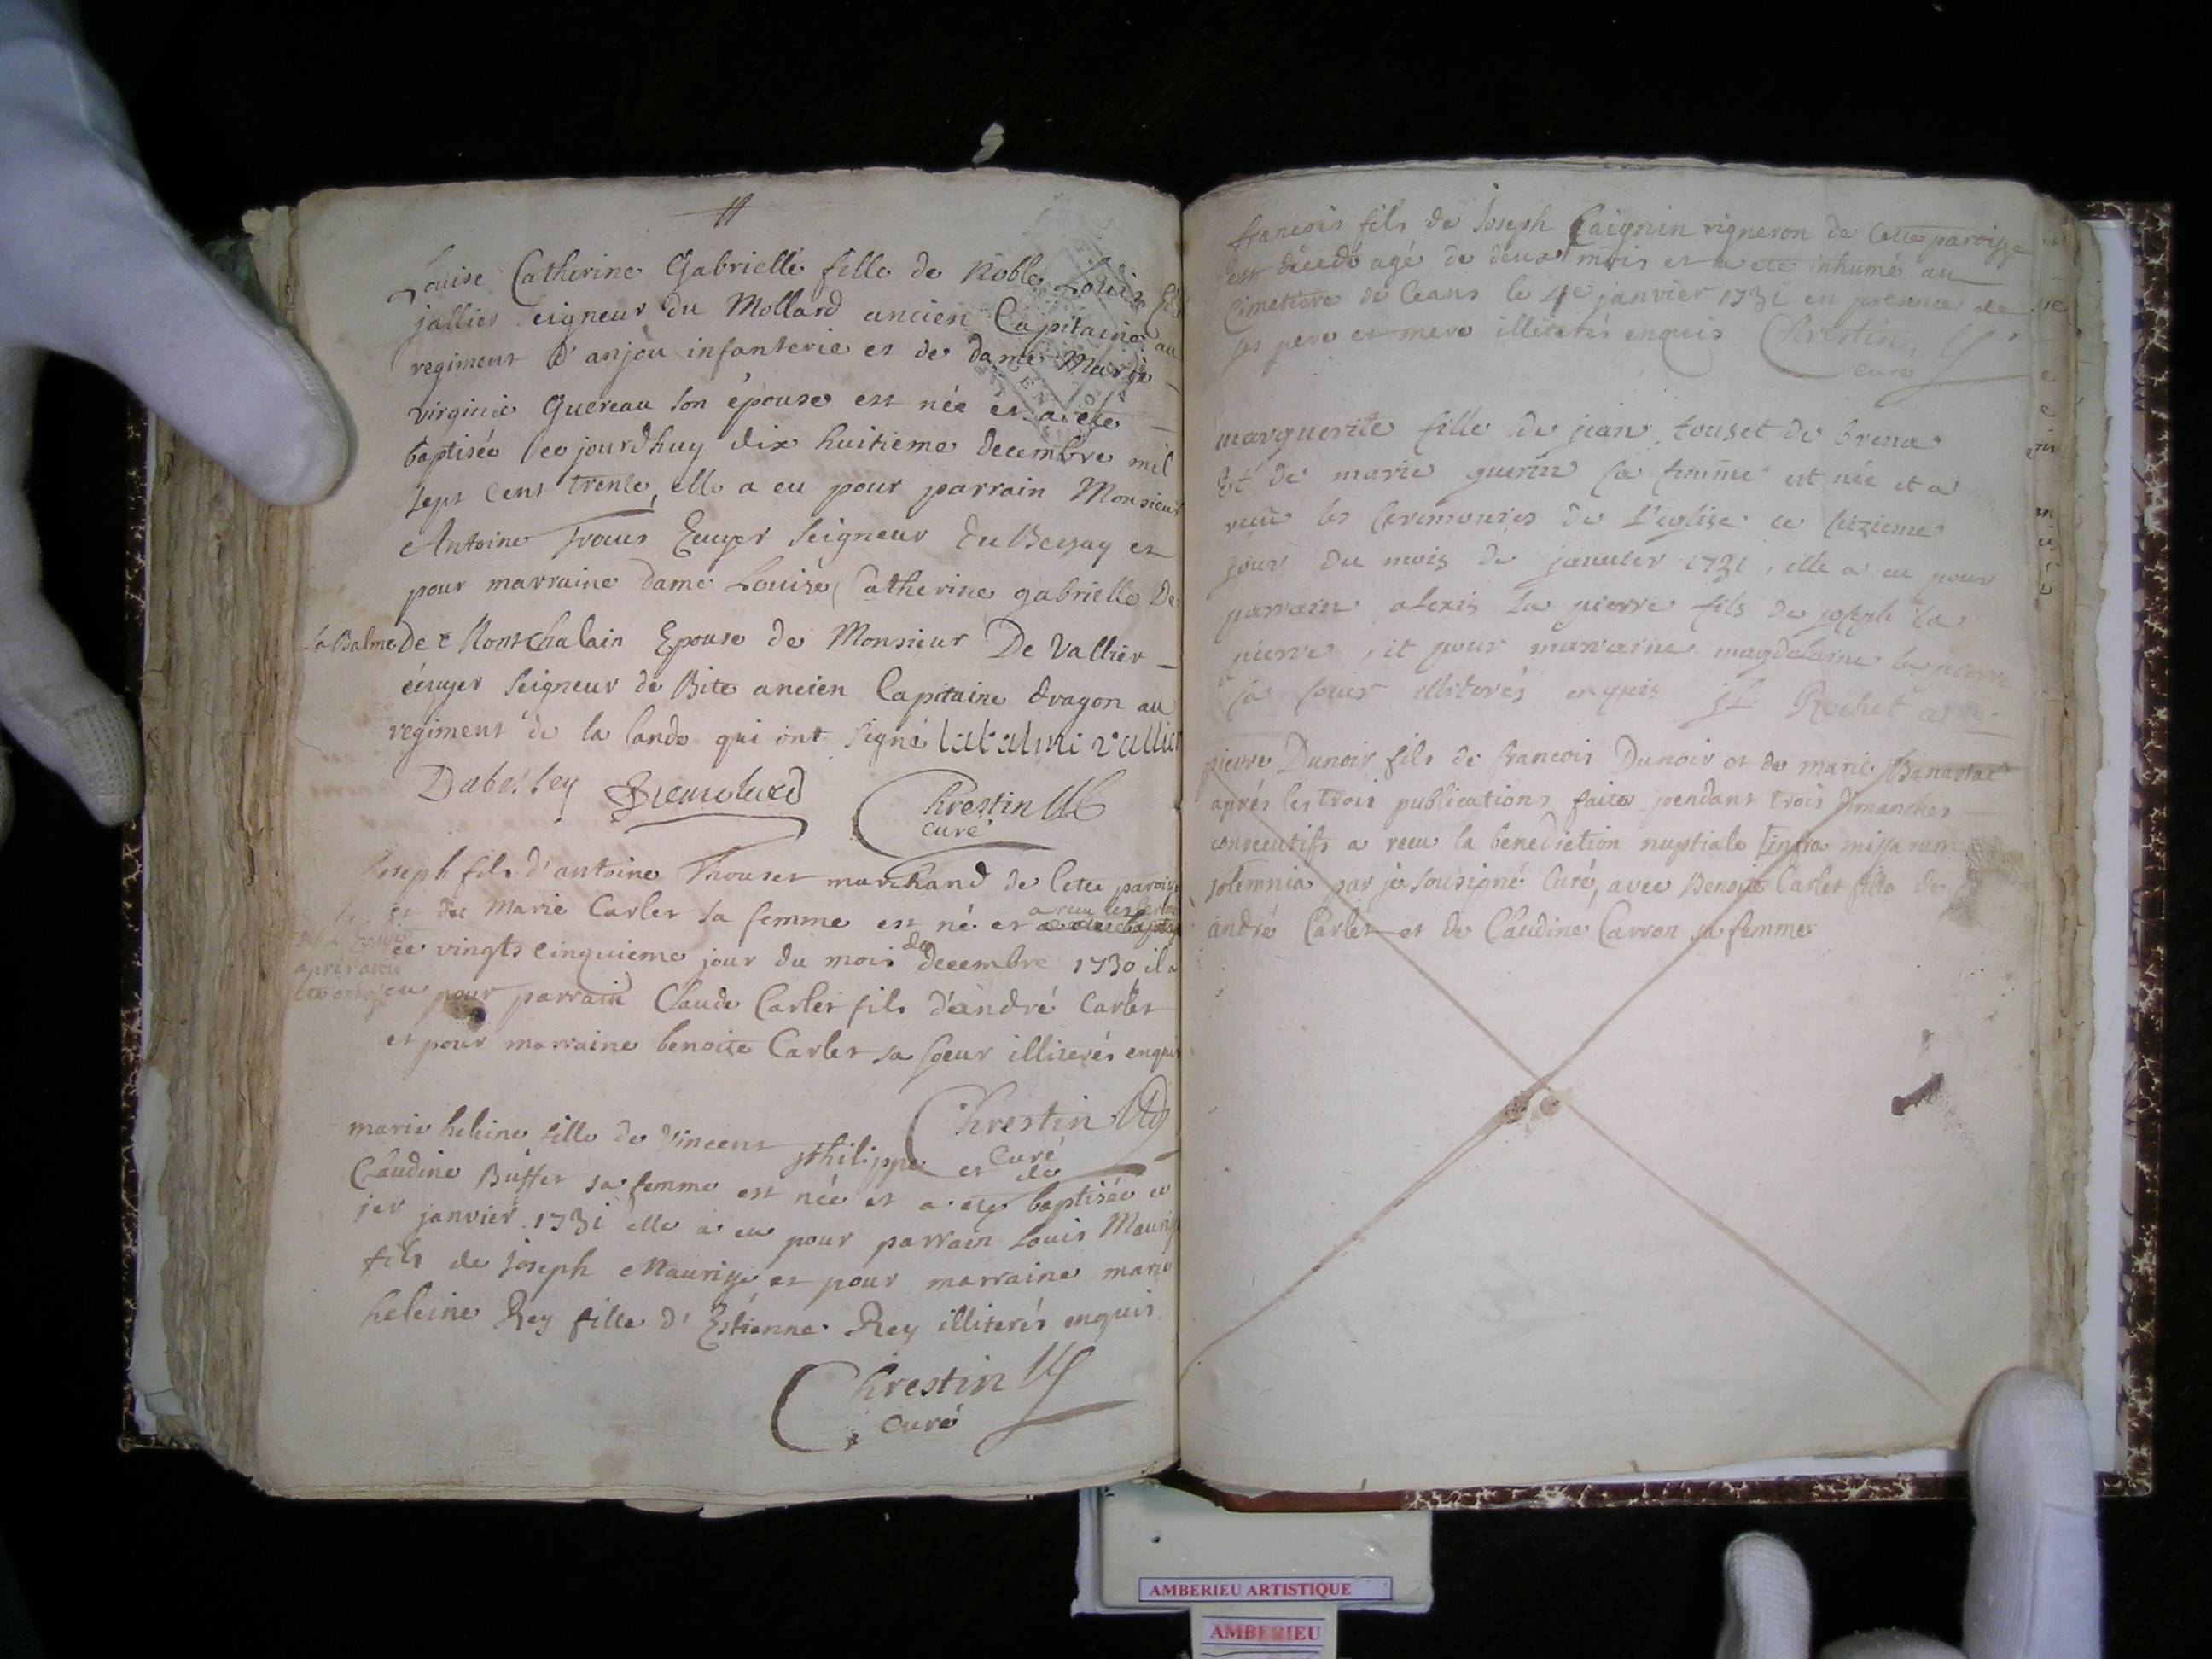 Louise Catherine Gabrielle fille de Noble Louis
jallier Seigneur du Mollard ancien Capitaine au
regiment d'anjou infanterie et de dame Marie
virginie Guereau son épouse est née et a ete
baptisée ce jourdhuy dix huitieme decembre mil
sept cent trente, elle a eu pour parrain Monsieur
Antoine Ecuyer Seigneur Du Bessay et
pour marraine dame Louise Catherine gabrielle De
la Balme de Montchalain Epouse de Monsieur De Vallier
écuyer Seigneur de Bite ancien Capitaine dragon au
regiment de la lande qui ont signé labalme vallier
Chrestin
curé
Joseph fils d'antoine Thouset marchand de cette paroisse
et de Marie Carlet sa femme est né et a recu les
ce vingts cinquieme jour du mois de decembre 1730 il a
apres avoir
eu pour parrain Claude Carlet fils d'andré Carlet
et pour marraine benoite Carlet sa soeur illiterés enquis
Chrestin
Curé
marie heleine fille de vincent philippe et de
Claudine Buffet sa femme est née et a ete baptisée ce
1er janvier 1731 elle a eu pour parrain Louis
fils de joseph et pour marraine marie
heleine Rey fille d'Estienne Rey illiterés enquis
Chrestin
curé
francois fils de Joseph Caignin vigneron de cette paroisse
est décédé agé de deux mois et a ete inhumé au
Cimetiere de ceans le 4e janvier 1731 en presence de
ses pere et mere illiterés enquis Chrestin
curé
marguerite fille de jean touset de brena
Et de marie guerin sa femme est née et a
reçu les ceremonies de L'eglise ce seizieme
jour du mois de janvier 1731, elle a eu pour
parrain alexis la pierre fils de joseph la
pierre, et pour marraine magdelaine la pierre
sa soeur illiterés enquis Rochet
pierre Dunoir fils de francois Dunoir et de marie
aprés les trois publications faites pendant trois dimanches
consecutifs a recu la benediction nuptiale infra missarum
solemnia par je sousigné Curé, avec Benoite Carlet fille de
andré Carlet et de Claudine Carron sa femme
AMBERIEU ARTISTIQUE
AMBERIEU